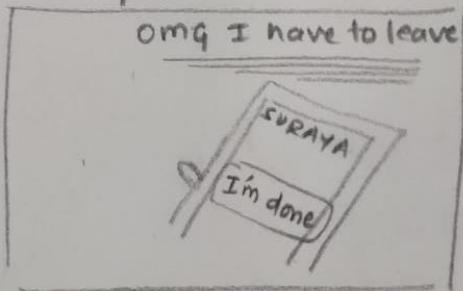 omg I have to leave
SURAYA
I'm done